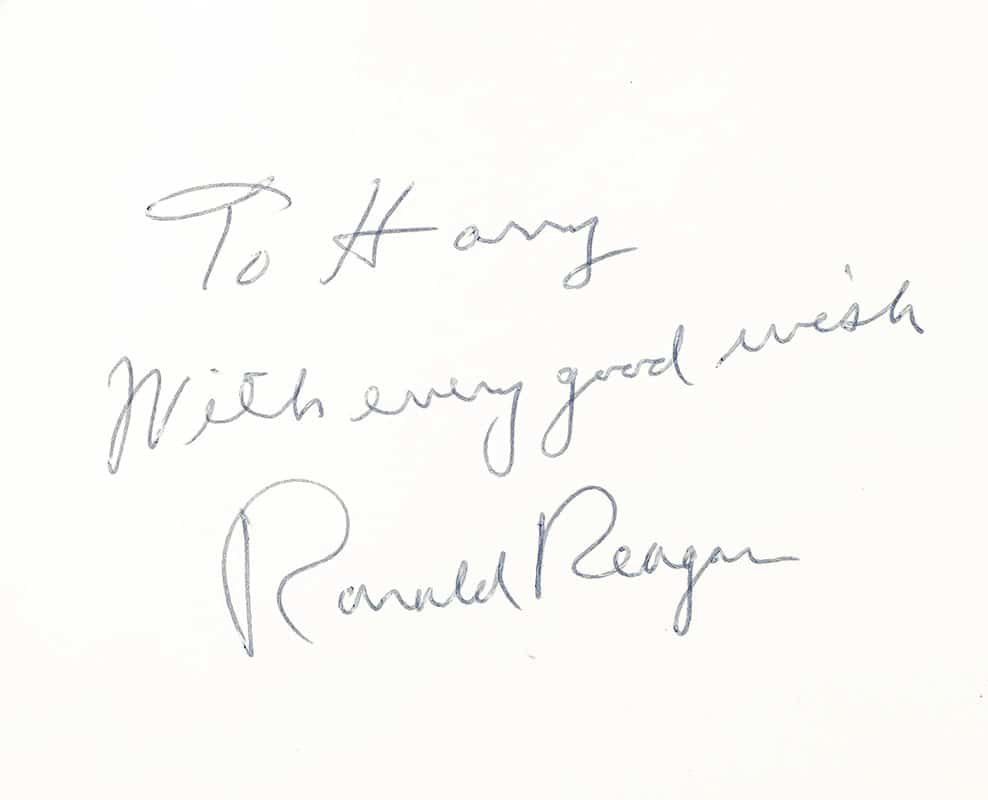 To Harry
With every good wish
Ronald Reagan